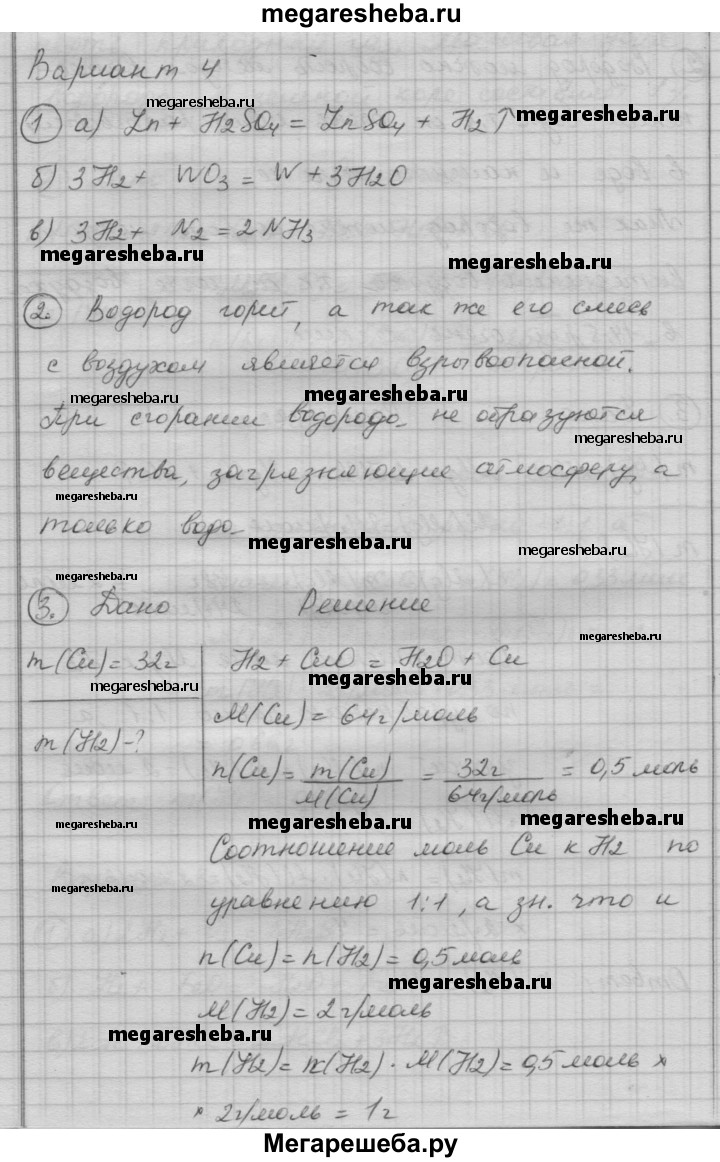 megaresheba.ru
Вариант 4
megaresheba.ru
megaresheba.ru
1 а) Zn + H2SO4 = ZnSO4 + H2↑
б) 3H2 + WO3 = W + 3H2O
в) 3H2 + N2 = 2NH3
megaresheba.ru
megaresheba.ru
2. Водород горит, а так же его смесь
с воздухом является взрывоопасной.
megaresheba.ru
megaresheba.ru
При сгорании водорода не образуются
megaresheba.ru
вещества, загрязняющие атмосферу, а
megaresheba.ru
только вода
megaresheba.ru
megaresheba.ru
megaresheba.ru
3. Дано Решение
megaresheba.ru
m(Cu) = 32г H2 + CuO = H2O + Cu
megaresheba.ru
megaresheba.ru
M(Cu) = 64г/моль
m(H2) - ?
n(Cu) = m(Cu) / M(Cu) = 32г / 64г/моль = 0,5 моль
megaresheba.ru
megaresheba.ru
megaresheba.ru
Соотношение моль Cu к H2 по
megaresheba.ru
уравнению 1:1, а зн. что и
n(Cu) = n(H2) = 0,5 моль
megaresheba.ru
M(H2) = 2г/моль
megaresheba.ru
m(H2) = n(H2) · M(H2) = 0,5 моль ×
× 2г/моль = 1г
Мегарешеба.ру